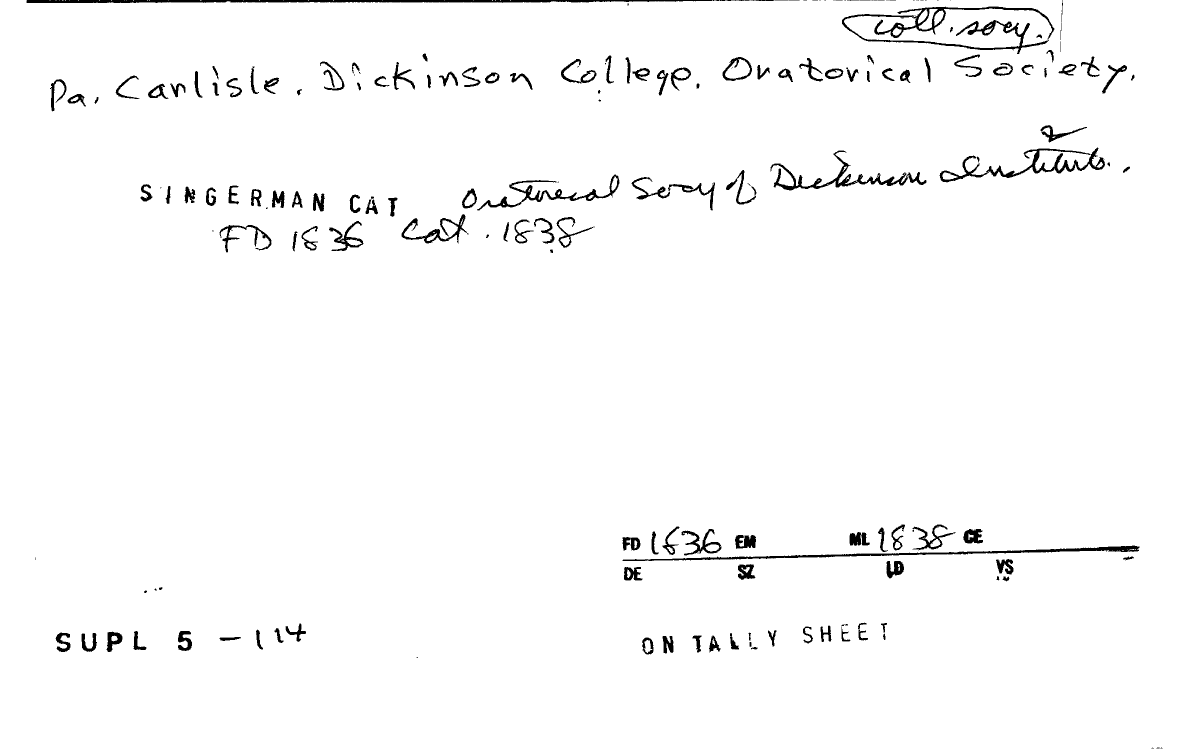 coll. socy.
Pa. Carlisle. Dickinson College. Oratorical Society.
SINGERMAN CAT Oratorical Socy of Dickinson Institute.,
FD 1836 Cat. 1838
FD 1836 EM ML 1838 CE
DE SZ LD VS
SUPL 5 - 114
ON TALLY SHEET